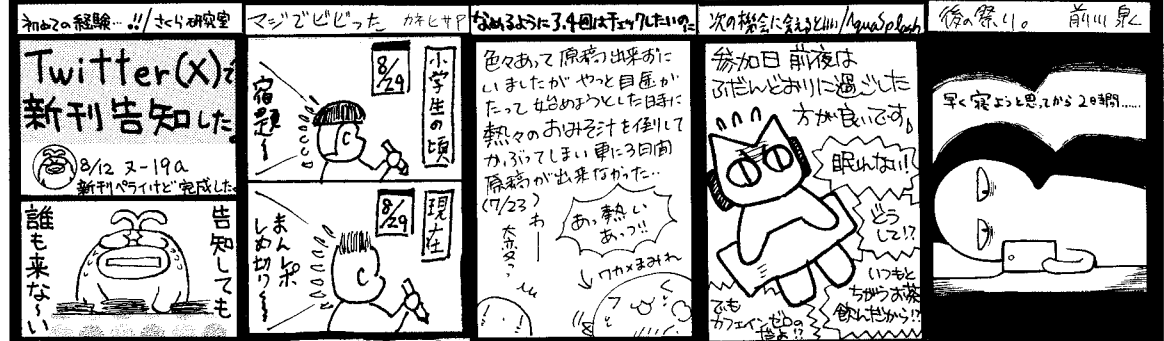 初めての経験…!!/さくら研究室
Twitter(X)で
新刊告知した。
8/12 ヌ-19a
新刊ペライけど完成した。
告知しても
誰も来な〜い
マジでビビった カネヒサP
小学生の頃
8/29
宿題〜
現在
8/29
まんレポ
しめ切り〜
なめるように3,4回はチェックしたいのに
色々あって原稿出来ずに
いましたがやっと目金が
たって始めようとした日時に
熱々のおみそ汁を倒して
かぶってしまい更に3日間
原稿が出来なかった…
(7/23)
わー
大変っ
あっ熱い
あっつ!!
ワカメまみれ
次の機会に会えるといい/AquaSplash
参加日前夜は
ふだんどおりに過ごした
方が良いです。
眠れない!
どうして!?
いつもと
ちがうお茶
飲んだから!?
でも
カフェインゼロの
だよ!?
後の祭り。 前川 泉
早く寝ようと思ってから2時間……